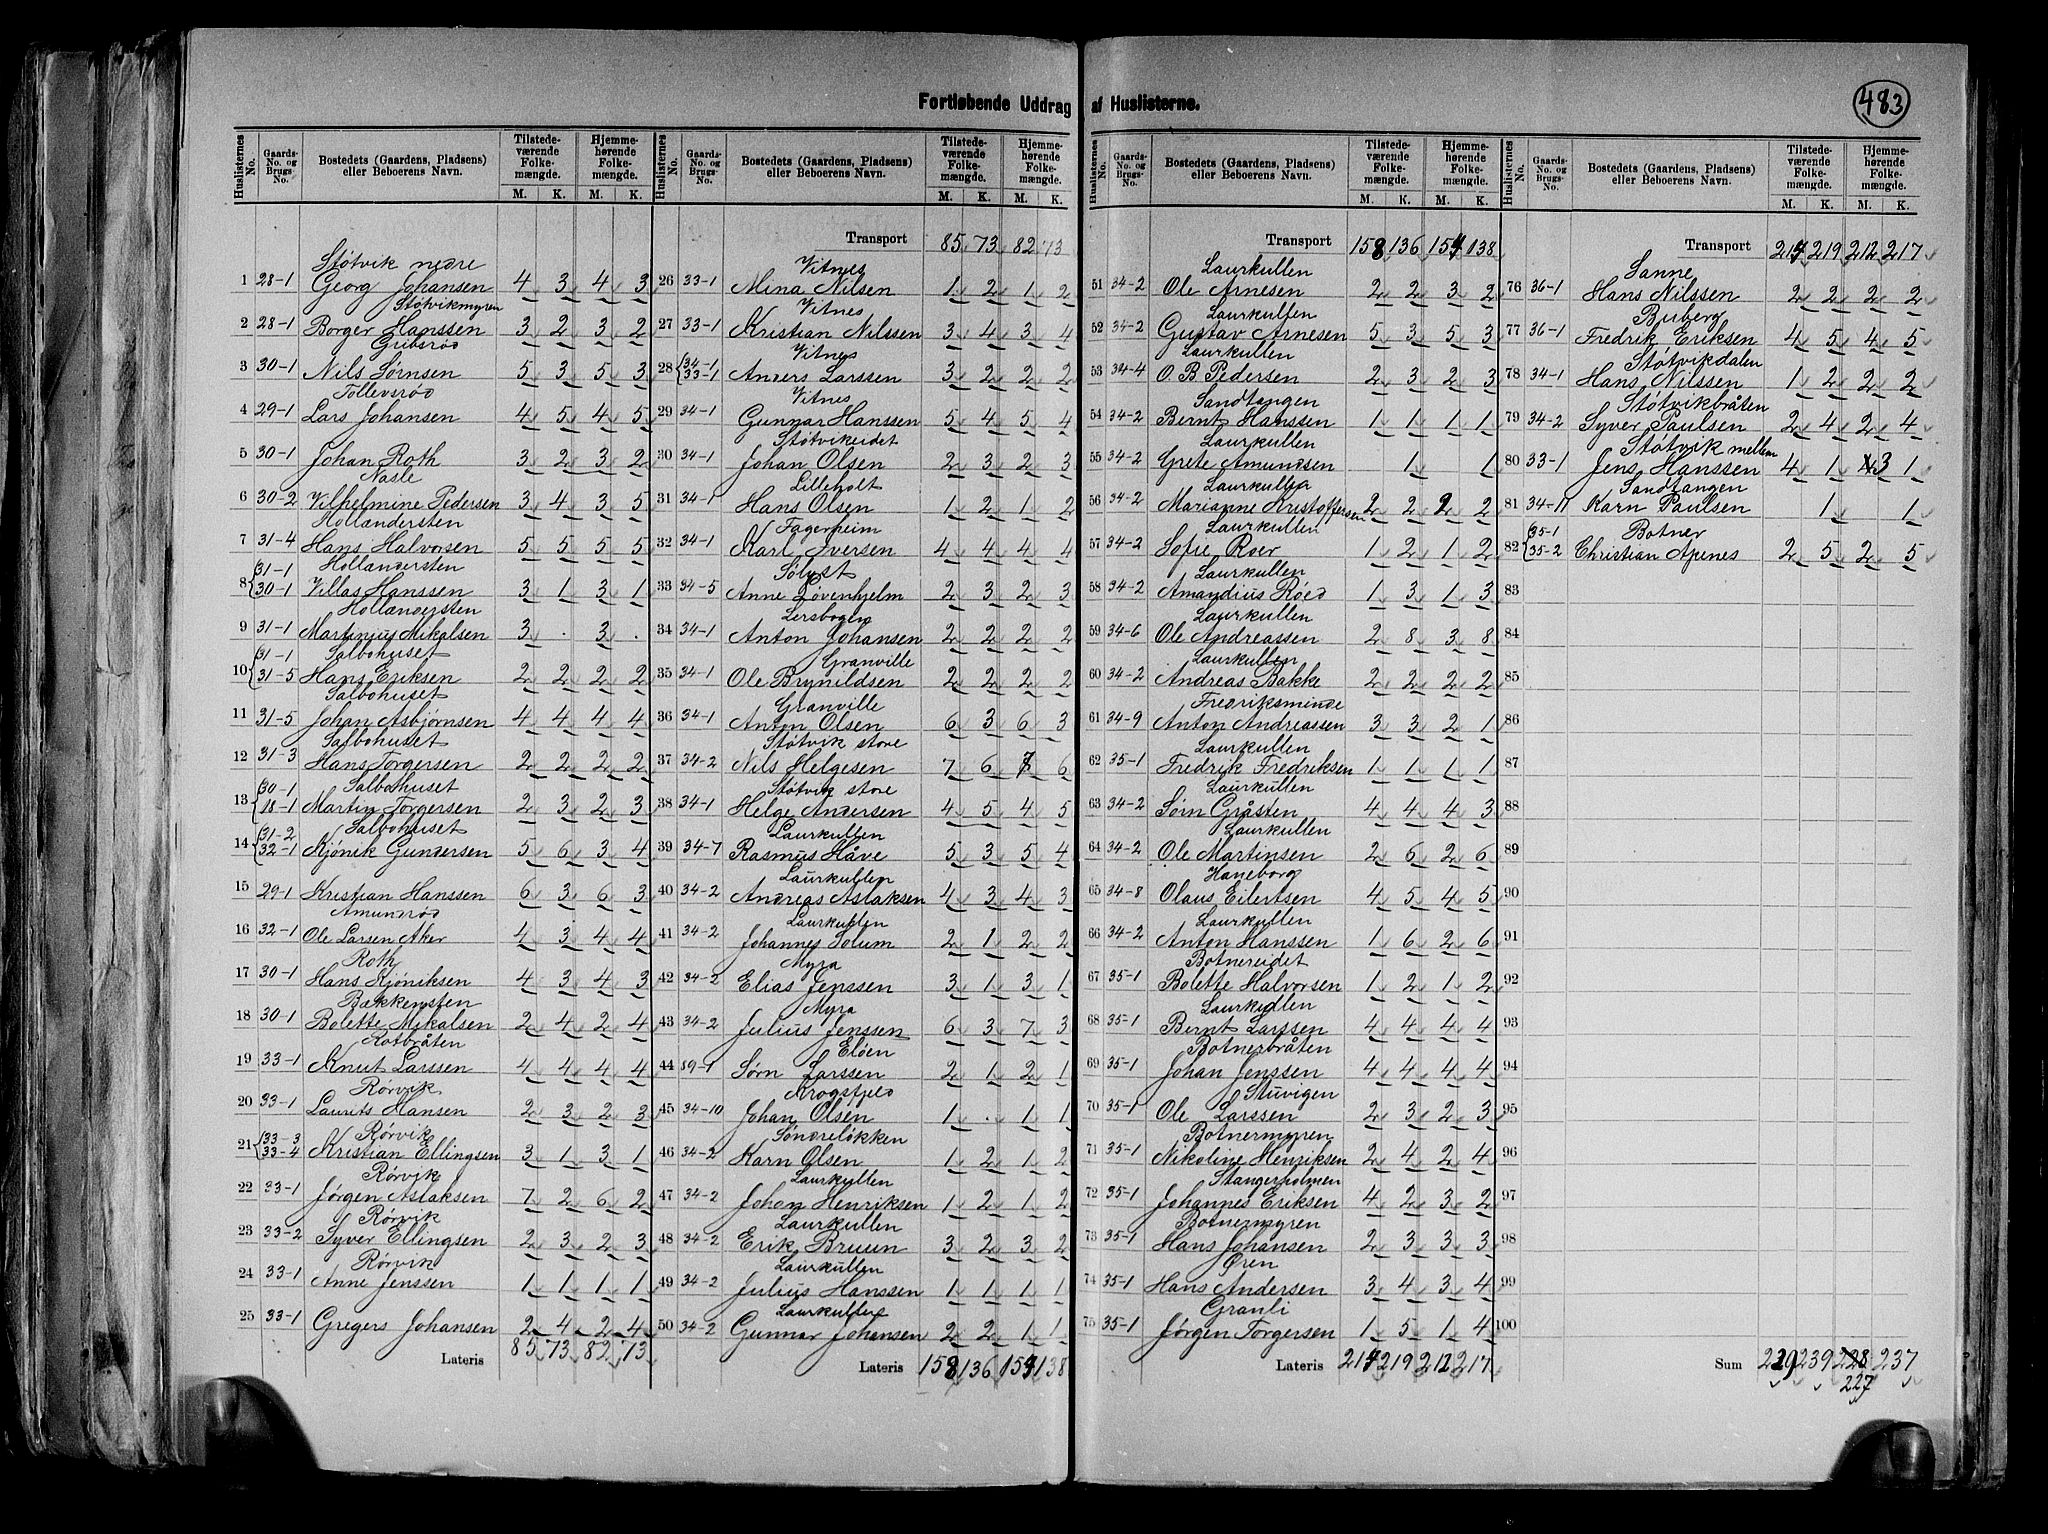 Fortløbende Uddrag af Huslisterne.
483
Huslisternes No. | Gaards- No. og Brugs- No. | Bostedets (Gaardens, Pladsens) eller Beboerens Navn. | Tilstede- værende Folke- mængde. M. K. | Hjemme- hørende Folke- mængde. M. K.
Støtvik nedre
1 28-1 Georg Johansen 4 3 4 3
Støtvikmyren
2 28-1 Borger Hanssen 3 2 3 2
Gribsrød
3 30-1 Nils Sørnsen 5 3 5 3
Tollevsrød
4 29-1 Lars Johansen 4 5 4 5
5 30-1 Johan Roth 3 2 3 2
Nasle
6 30-2 Vilhelmine Pedersen 3 4 3 5
Hollændersten
7 31-4 Hans Halvorsen 5 5 5 5
Hollændersten
8 31-1 30-1 Villas Hanssen 3 1 3 1
Hollændersten
9 31-1 Martinius Mikalsen 3 . 3 .
Salbohuset
10 31-1 31-5 Hans Eriksen 2 2 2 2
Salbohuset
11 31-5 Johan Asbjørnsen 4 4 4 4
Salbohuset
12 31-3 Hans Torgersen 2 2 2 2
Salbohuset
13 30-1 18-1 Martin Torgersen 2 3 2 3
Salbohuset
14 31-2 32-1 Kjønik Gundersen 5 6 3 4
15 29-1 Kristian Hanssen 6 3 6 3
Amundrød
16 32-1 Ole Larsen Aker 4 3 4 4
Roth
17 30-1 Hans Kjøniksen 4 3 4 3
Bækkensten
18 30-1 Bolette Mikalsen 2 4 2 4
Rotbråten
19 33-1 Knut Larssen 4 4 4 4
Rørvik
20 33-1 Laurits Hansen 2 3 2 3
Rørvik
21 33-3 33-4 Kristian Ellingsen 3 1 3 1
Rørvik
22 33-1 Jørgen Aslaksen 7 2 6 2
Rørvik
23 33-2 Syver Ellingsen 2 3 2 3
Rørvik
24 33-1 Anne Jenssen 1 1 1 1
25 33-1 Gregers Johansen 2 4 2 4
Lateris 85 73 82 73
Huslisternes No. | Gaards- No. og Brugs- No. | Bostedets (Gaardens, Pladsens) eller Beboerens Navn. | Tilstede- værende Folke- mængde. M. K. | Hjemme- hørende Folke- mængde. M. K.
Transport 85 73 82 73
Vitnes
26 33-1 Mina Nilsen 1 2 1 2
Vitnes
27 33-1 Kristian Nilssen 3 4 3 4
Vitnes
28 34-1 33-1 Anders Larssen 3 2 2 2
Vitnes
29 34-1 Gunnar Hanssen 5 4 5 4
Støtvikeidet
30 34-1 Johan Olsen 2 3 2 3
Lilleholt
31 34-1 Hans Olsen 1 2 1 2
Fagerheim
32 34-1 Karl Iversen 4 4 4 4
Sølyst
33 34-5 Anne Løvenhjelm 2 3 2 3
Lersbogen
34 34-1 Anton Johansen 2 2 2 2
Granville
35 34-1 Ole Brynildsen 2 2 2 2
Granville
36 34-1 Anton Olsen 6 3 6 3
Støtvik store
37 34-2 Nils Helgesen 7 6 8 6
Støtvik store
38 34-1 Helge Andersen 4 5 4 5
Laurkullen
39 34-7 Rasmus Håve 5 3 5 4
Laurkullen
40 34-2 Andreas Aslaksen 4 3 4 3
Laurkullen
41 34-2 Johannes Solum 2 1 2 2
Myra
42 34-2 Elias Jenssen 3 1 3 1
Myra
43 34-2 Julius Jenssen 6 3 7 3
Eløen
44 89-1 Sørn Larssen 2 1 2 1
Krogstfjeld
45 34-10 Johan Olsen 1 . 1 1
Søndreløkken
46 34-2 Karn Olsen 1 2 1 2
Laurkullen
47 34-2 Johan Henriksen 1 2 1 2
Laurkullen
48 34-2 Erik Bruun 3 2 3 2
Laurkullen
49 34-2 Julius Hanssen 1 1 1 1
Laurkullen
50 34-2 Gunnar Johansen 2 2 1 1
Lateris 158 136 154 138
Huslisternes No. | Gaards- No. og Brugs- No. | Bostedets (Gaardens, Pladsens) eller Beboerens Navn. | Tilstede- værende Folke- mængde. M. K. | Hjemme- hørende Folke- mængde. M. K.
Transport 158 136 154 138
Laurkullen
51 34-2 Ole Arnesen 2 2 3 2
Laurkullen
52 34-2 Gustav Arnesen 5 3 5 3
Laurkullen
53 34-4 O. B. Pedersen 2 3 2 3
Sandtangen
54 34-2 Bernt Hanssen 1 1 1 1
Laurkullen
55 34-2 Grete Amundsen 1 1
Laurkullen
56 34-2 Marianne Kristoffersen 2 2 2 2
Laurkullen
57 34-2 Sofie Roer 1 2 1 2
Laurkullen
58 34-2 Amandius Røed 1 3 1 3
Laurkullen
59 34-6 Ole Andreassen 2 8 3 8
Laurkullen
60 34-2 Andreas Bakke 2 2 2 2
Fredriksminde
61 34-9 Anton Andreassen 3 3 2 1
Laurkullen
62 35-1 Fredrik Fredriksen 1 1 1 1
Laurkullen
63 34-2 Sørn Gråsten 4 4 4 3
Laurkullen
64 34-2 Ole Martinsen 2 6 2 6
Haneborg
65 34-8 Olaus Eilertsen 4 5 4 5
Laurkullen
66 34-2 Anton Hanssen 1 6 2 6
Botnereidet
67 35-1 Bolette Halvorsen 1 2 1 2
Laurkullen
68 35-1 Bernt Larssen 4 4 4 4
Botnerbråten
69 35-1 Johan Jenssen 4 4 4 4
Stuvigen
70 35-1 Ole Larssen 2 3 2 3
Botnermyren
71 35-1 Nikoline Henriksen 2 4 2 4
Stangerholmen
72 35-1 Johannes Eriksen 4 2 3 2
Botnermyren
73 35-1 Hans Johansen 2 3 3 3
Øren
74 35-1 Hans Andersen 3 4 3 4
Granli
75 35-1 Jørgen Torgersen 1 5 1 4
Lateris 214 219 212 217
Huslisternes No. | Gaards- No. og Brugs- No. | Bostedets (Gaardens, Pladsens) eller Beboerens Navn. | Tilstede- værende Folke- mængde. M. K. | Hjemme- hørende Folke- mængde. M. K.
Transport 214 219 212 217
Sanne
76 36-1 Hans Nilssen 2 2 2 2
Buberg
77 36-1 Fredrik Eriksen 4 5 4 5
Støtvikdalen
78 34-1 Hans Nilssen 1 2 2 2
Støtvikbråten
79 34-2 Syver Paulsen 2 4 2 4
Støtvik mellem
80 33-1 Jens Hanssen 4 1 4 3 1
Sandtangen
81 34-11 Karn Paulsen 1 1
Botner
82 35-1 35-2 Christian Apenes 2 5 2 5
83
84
85
86
87
88
89
90
91
92
93
94
95
96
97
98
99
100
Sum 229 239 228 237
227